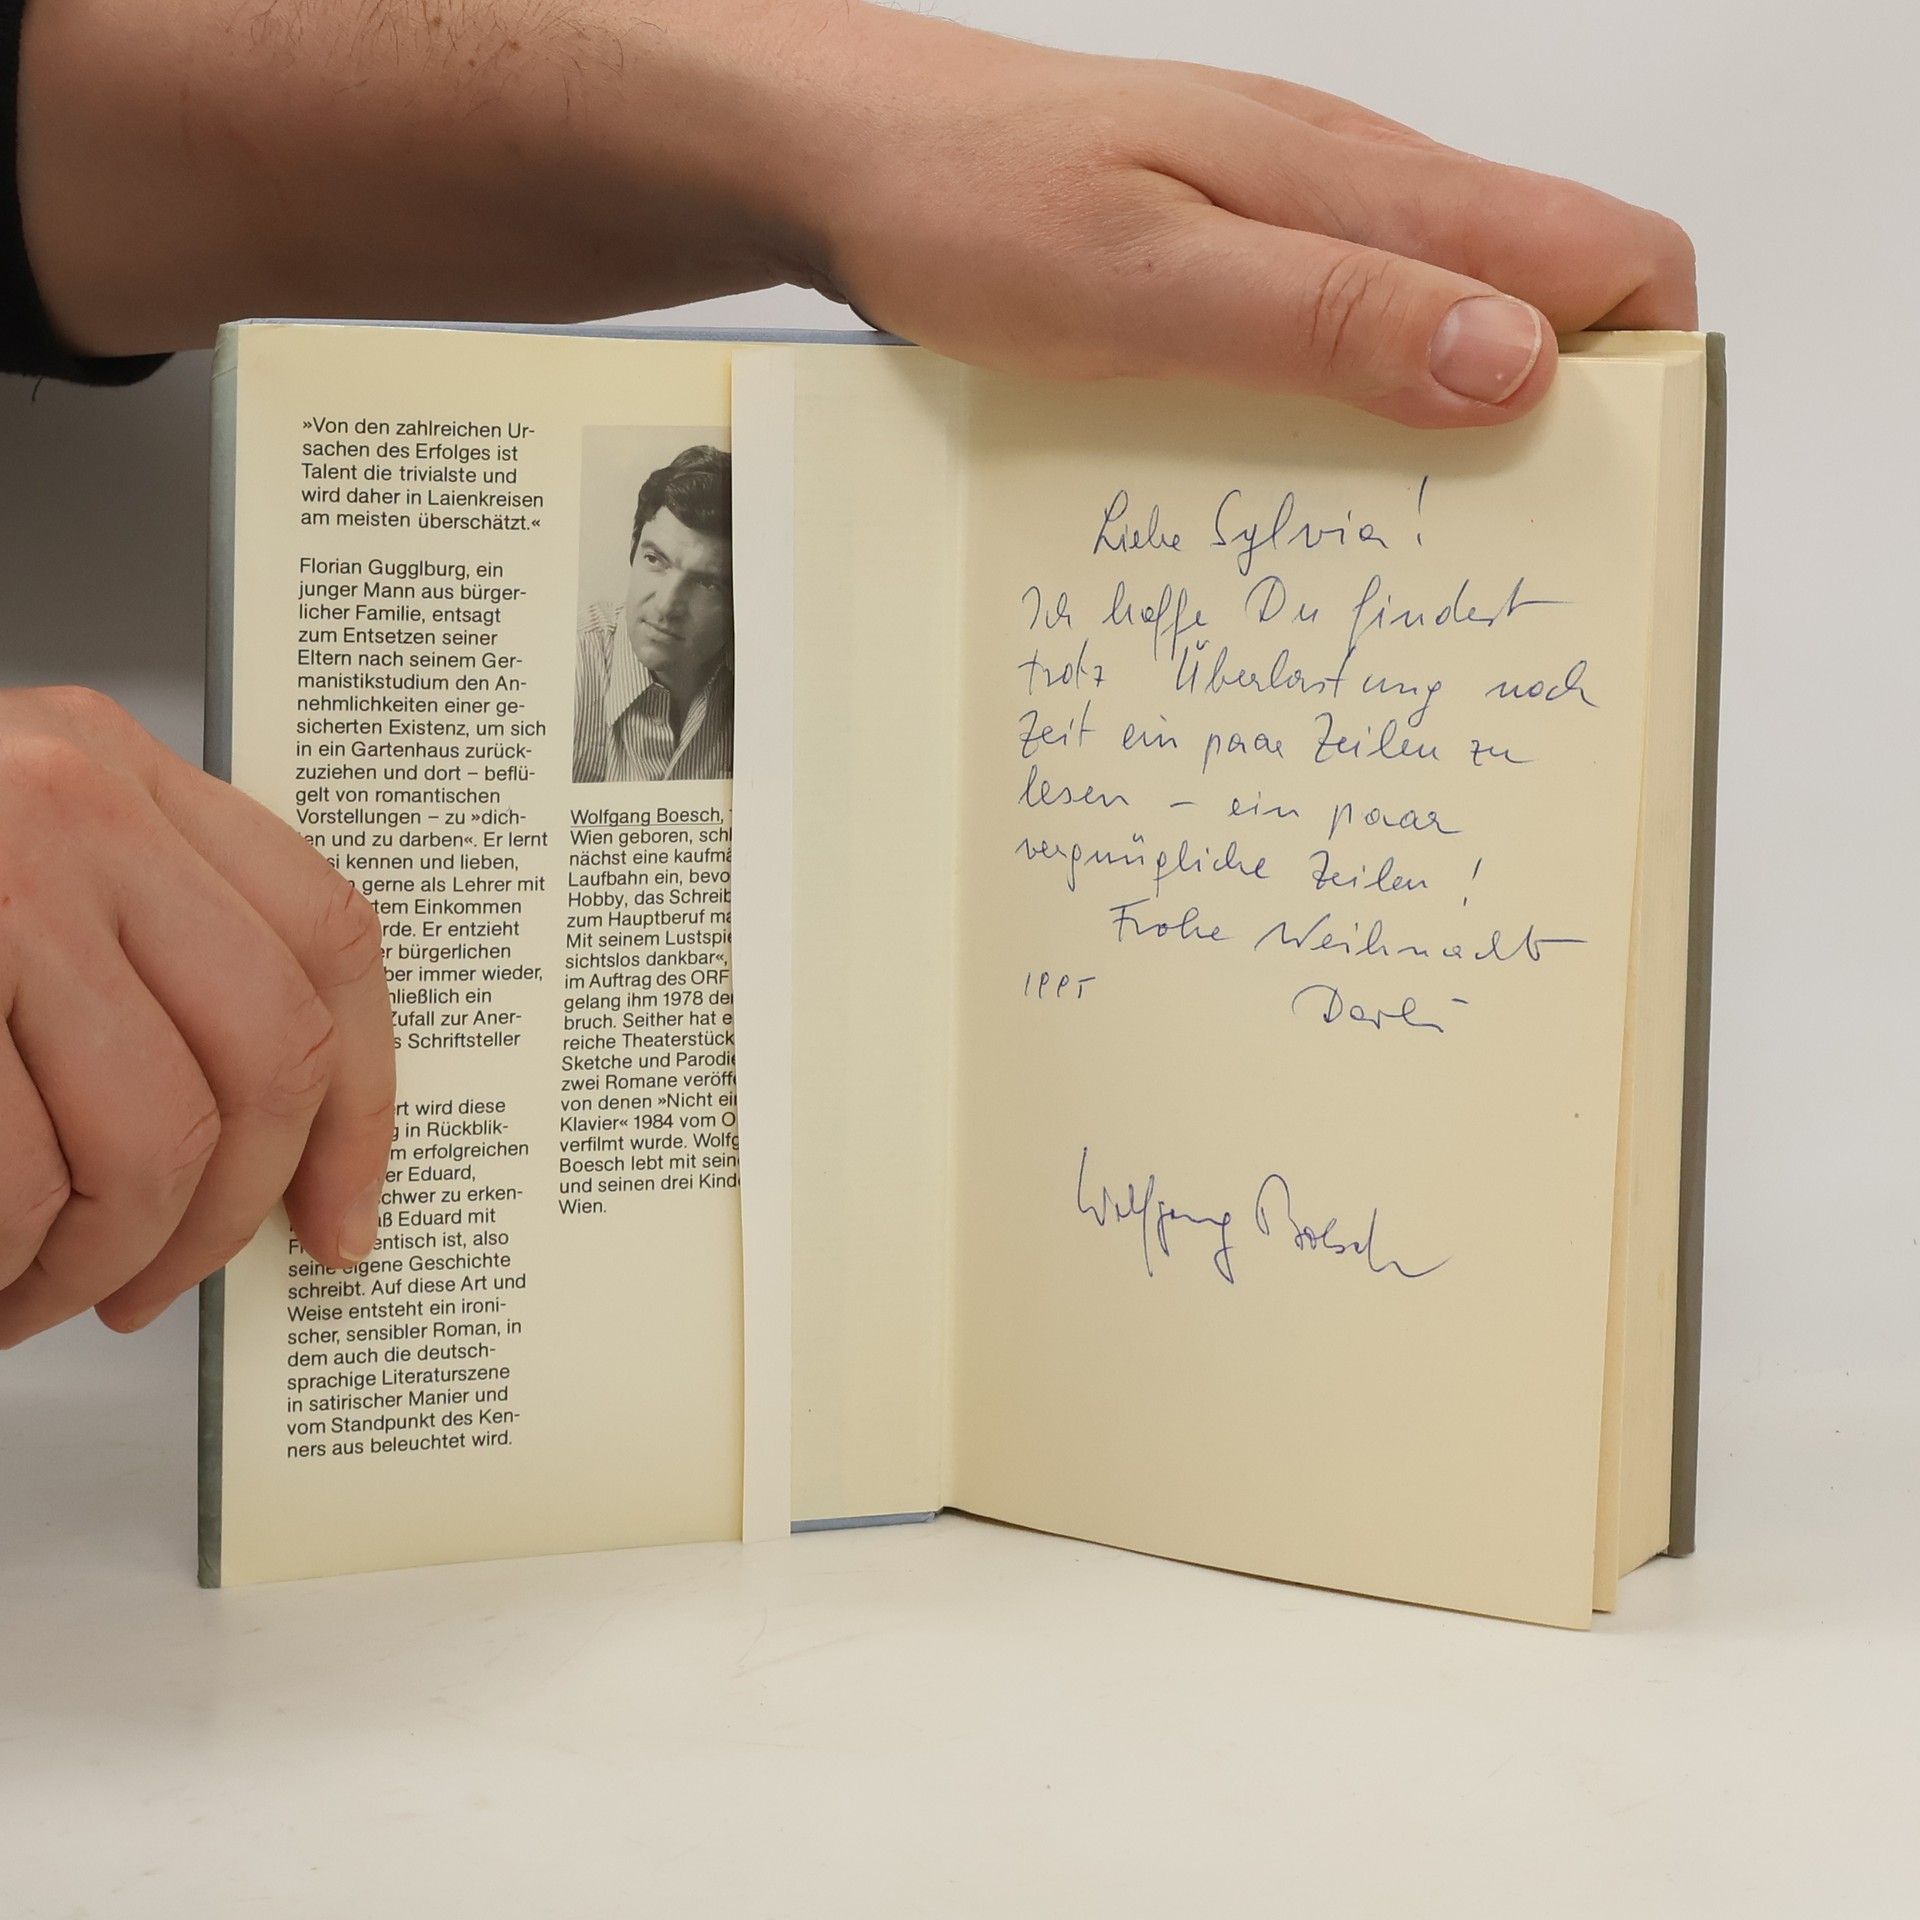 »Von den zahlreichen Ur-
sachen des Erfolges ist
Talent die trivialste und
wird daher in Laienkreisen
am meisten überschätzt.«
Florian Gugglburg, ein
junger Mann aus bürger-
licher Familie, entsagt
zum Entsetzen seiner
Eltern nach seinem Ger-
manistikstudium den An-
nehmlichkeiten einer ge-
sicherten Existenz, um sich
in ein Gartenhaus zurück-
zuziehen und dort – beflü-
gelt von romantischen
Vorstellungen – zu »dich-
und zu darben«. Er lernt
kennen und lieben,
gerne als Lehrer mit
Einkommen
Er entzieht
bürgerlichen
immer wieder,
ein
Zufall zur Aner-
Schriftsteller
wird diese
in Rückblik-
erfolgreichen
Eduard,
schwer zu erken-
Eduard mit
ist, also
seine eigene Geschichte
schreibt. Auf diese Art und
Weise entsteht ein ironi-
scher, sensibler Roman, in
dem auch die deutsch-
sprachige Literaturszene
in satirischer Manier und
vom Standpunkt des Ken-
ners aus beleuchtet wird.
Wolfgang Boesch,
Wien geboren, schl
nächst eine kaufmä
Laufbahn ein, bevo
Hobby, das Schreib
zum Hauptberuf ma
Mit seinem Lustspie
sichtslos dankbar«,
im Auftrag des ORF
gelang ihm 1978 der
bruch. Seither hat e
reiche Theaterstück
Sketche und Parodie
zwei Romane veröffe
von denen »Nicht ein
Klavier« 1984 vom O
verfilmt wurde. Wolfg
Boesch lebt mit sein
und seinen drei Kind
Wien.
Liebe Sylvia!
Ich hoffe Du findest
trotz Überlastung noch
Zeit ein paar Zeilen zu
lesen – ein paar
vergnügliche Zeilen!
Frohe Weihnacht
1995
Wolfgang Boesch